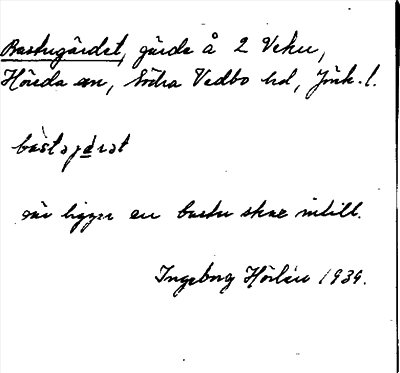 Bastugärdet, gärde å 2 Veku,
Hörda sn, Södra Vedbo hd, Jönk. l.
bàstəgä̀rət
där ligger en bastu strax intill.
Ingeborg Hörlén 1939.